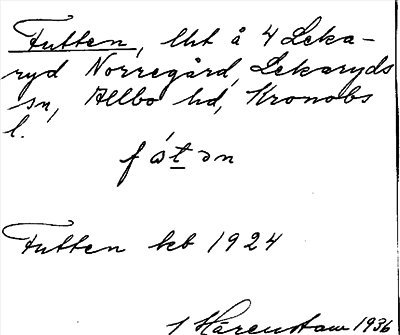 Futten, lht å 4 Leka-
ryd Norregård, Lekaryds
sn, Allbo hd, Kronobs
l.
fɵ́tən
Futten keb 1924
1 Härenstam 1936